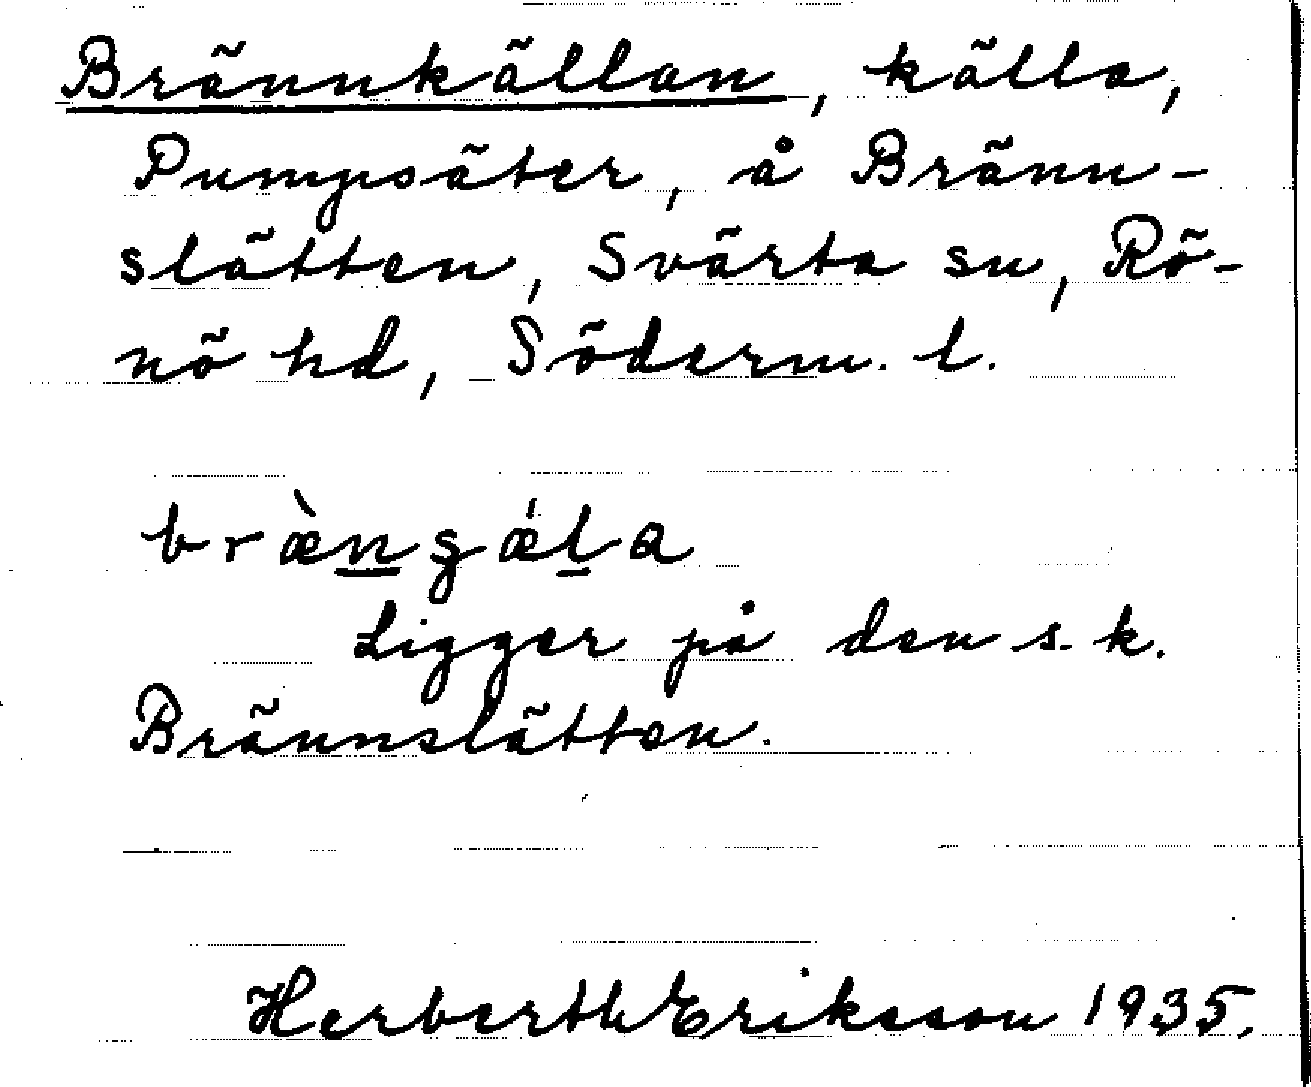 Brännkällan, källa,
Pumpsäter, å Bränn-
slätten, Svärta sn, Rö-
nö hd, Söderm. l.
bræ̀ngǽla
Ligger på den s.k.
Brännslätten.
Herberth Eriksson 1935.